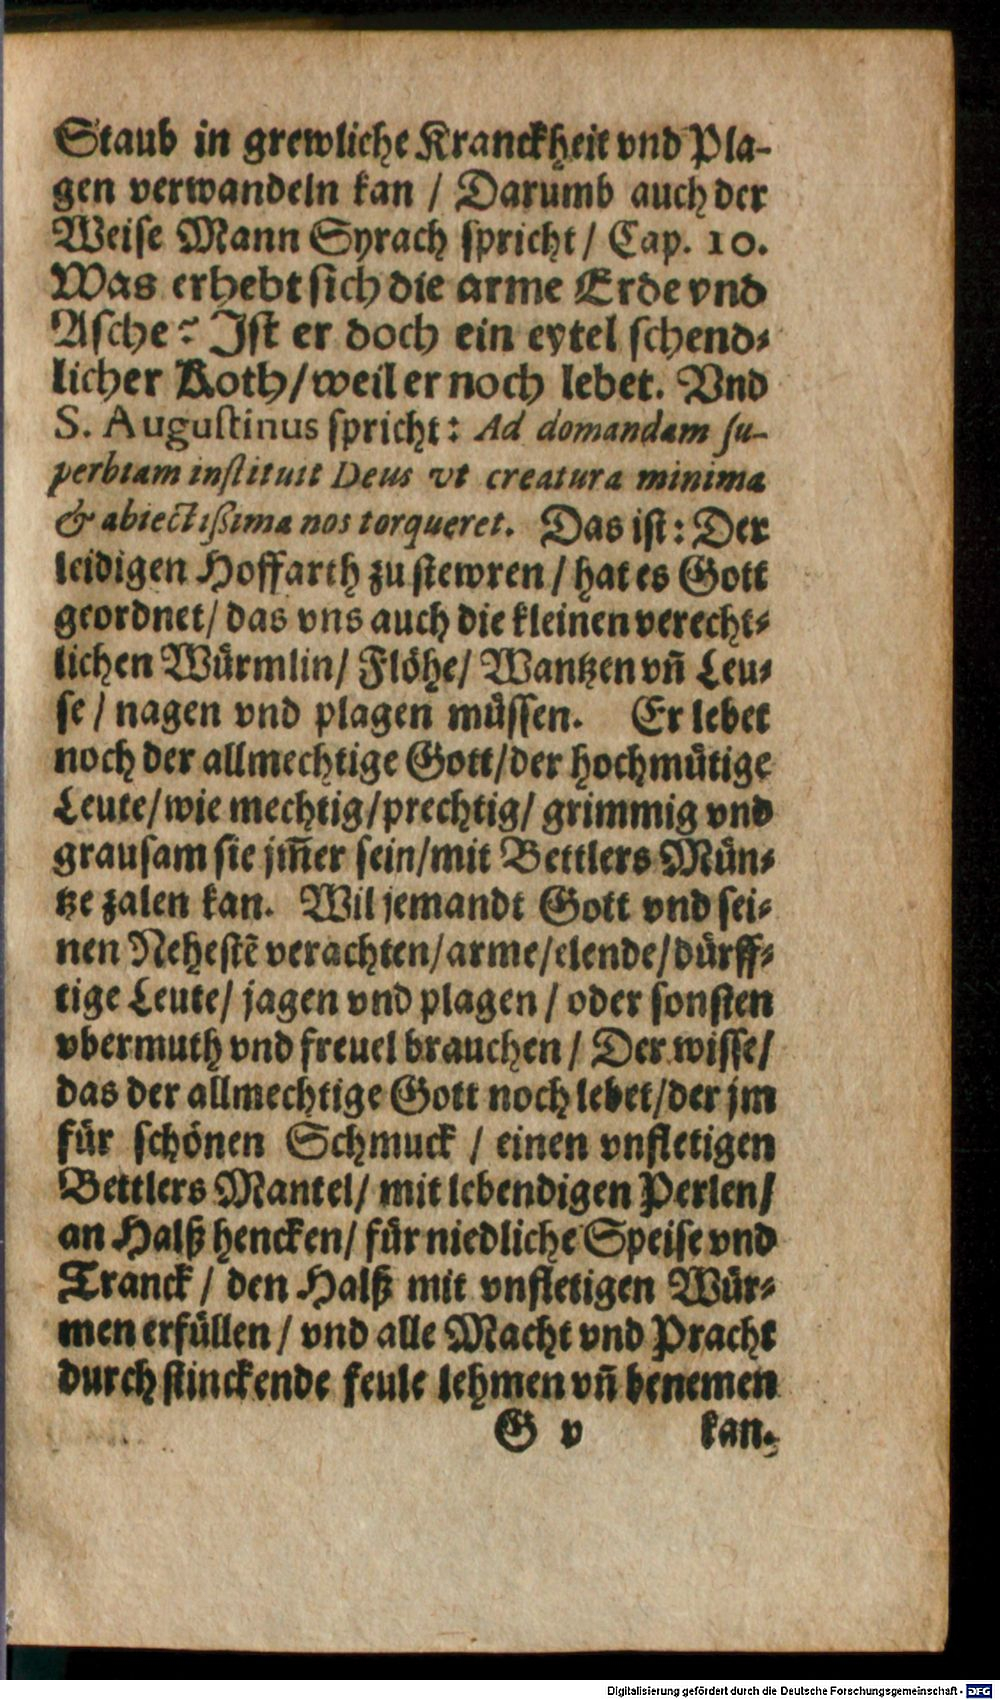 Staub in grewliche Kranckheit vnd Pla-
gen verwandeln kan / Darumb auch der
Weise Mann Syrach spricht / Cap. 10.
Was erhebt sich die arme Erde vnd
Asche? Ist er doch ein eytel schend-
licher Koth/weil er noch lebet. Vnd
S. Augustinus spricht: Ad domandam su-
perbiam instituit Deus vt creatura minima
& abiectißima nos torqueret. Das ist: Der
leidigen Hoffarth zu stewren / hat es Gott
geordnet/ das vns auch die kleinen verecht-
lichen Würmlin/ Flöhe/ Wantzen vn̄ Leu-
se / nagen vnd plagen müssen. Er lebet
noch der allmechtige Gott/der hochmütige
Leute/wie mechtig/prechtig/ grimmig vnd
grausam sie jm̄er sein/mit Bettlers Mün-
tze zalen kan. Wil jemandt Gott vnd sei-
nen Nehestē verachten/arme/elende/dürff-
tige Leute/ jagen vnd plagen / oder sonsten
vbermuth vnd freuel brauchen / Der wisse/
das der allmechtige Gott noch lebet/der jm
für schönen Schmuck / einen vnfletigen
Bettlers Mantel/ mit lebendigen Perlen/
an Halß hencken/ für niedliche Speise vnd
Tranck / den Halß mit vnfletigen Wür-
men erfüllen / vnd alle Macht vnd Pracht
durch stinckende feule lehmen vn̄ benemen
G v kan.
Digitalisierung gefördert durch die Deutsche Forschungsgemeinschaft - DFG